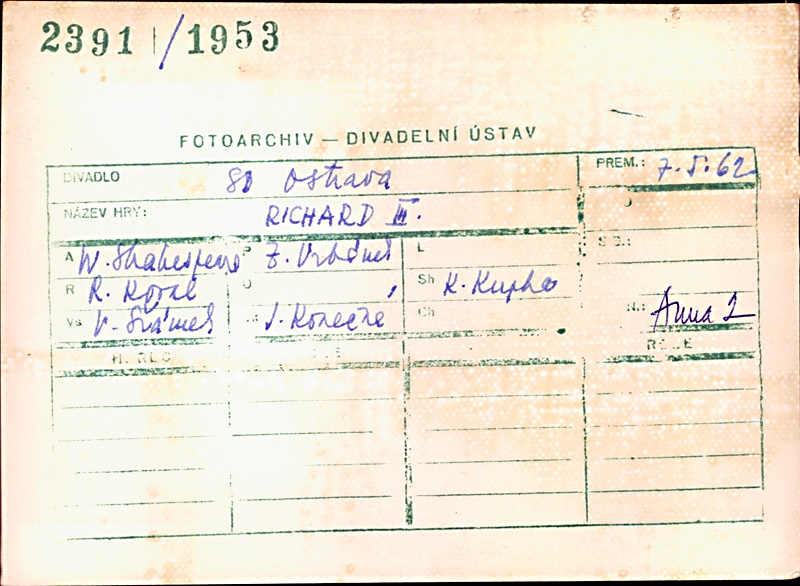 2391 / 1953
FOTOARCHIV — DIVADELNÍ ÚSTAV
DIVADLO SD Ostrava PREM.: 7.5.62
NÁZEV HRY: RICHARD III.
A W. Shakespeare P Z. Vrbánek L
R R. Koval Sh K. Kupka
Vs V. Šrámek J. Konečná Ch N.: Anna 2